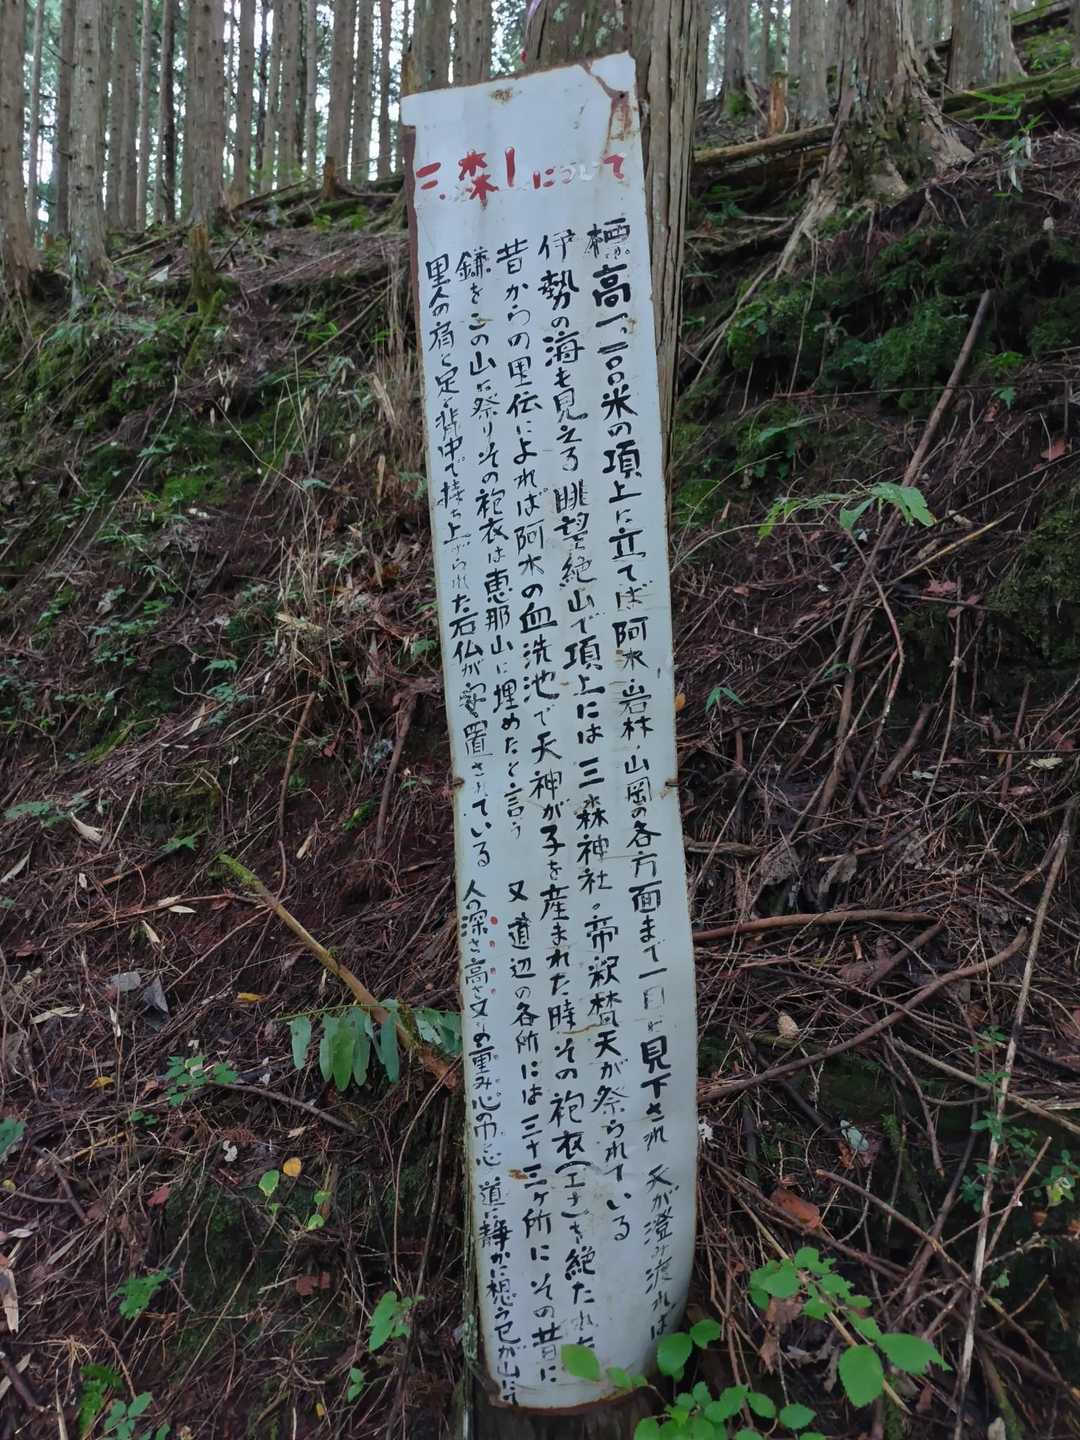 三森山について
標高一、一〇〇米の項上に立てば阿木・岩村・山岡の各方面まで一目に見下され 天が澄み渡れば
伊勢の海も見える眺望絶山で項上には三森神社。帝釈梵天が祭られている
昔からの里伝によれば阿木の血洗池で天神が子を産まれた時その袍衣(エさ)を絶たれた
鎌をこの山に祭りその袍衣は恵那山に埋めたと言う 又道辺の各所には三十三ヶ所にその昔に
里人の肩と足と背中で持ち上げられた石仏が安置されている 人の深さ高さ 重み心の 心 道に静かに想う己が山に